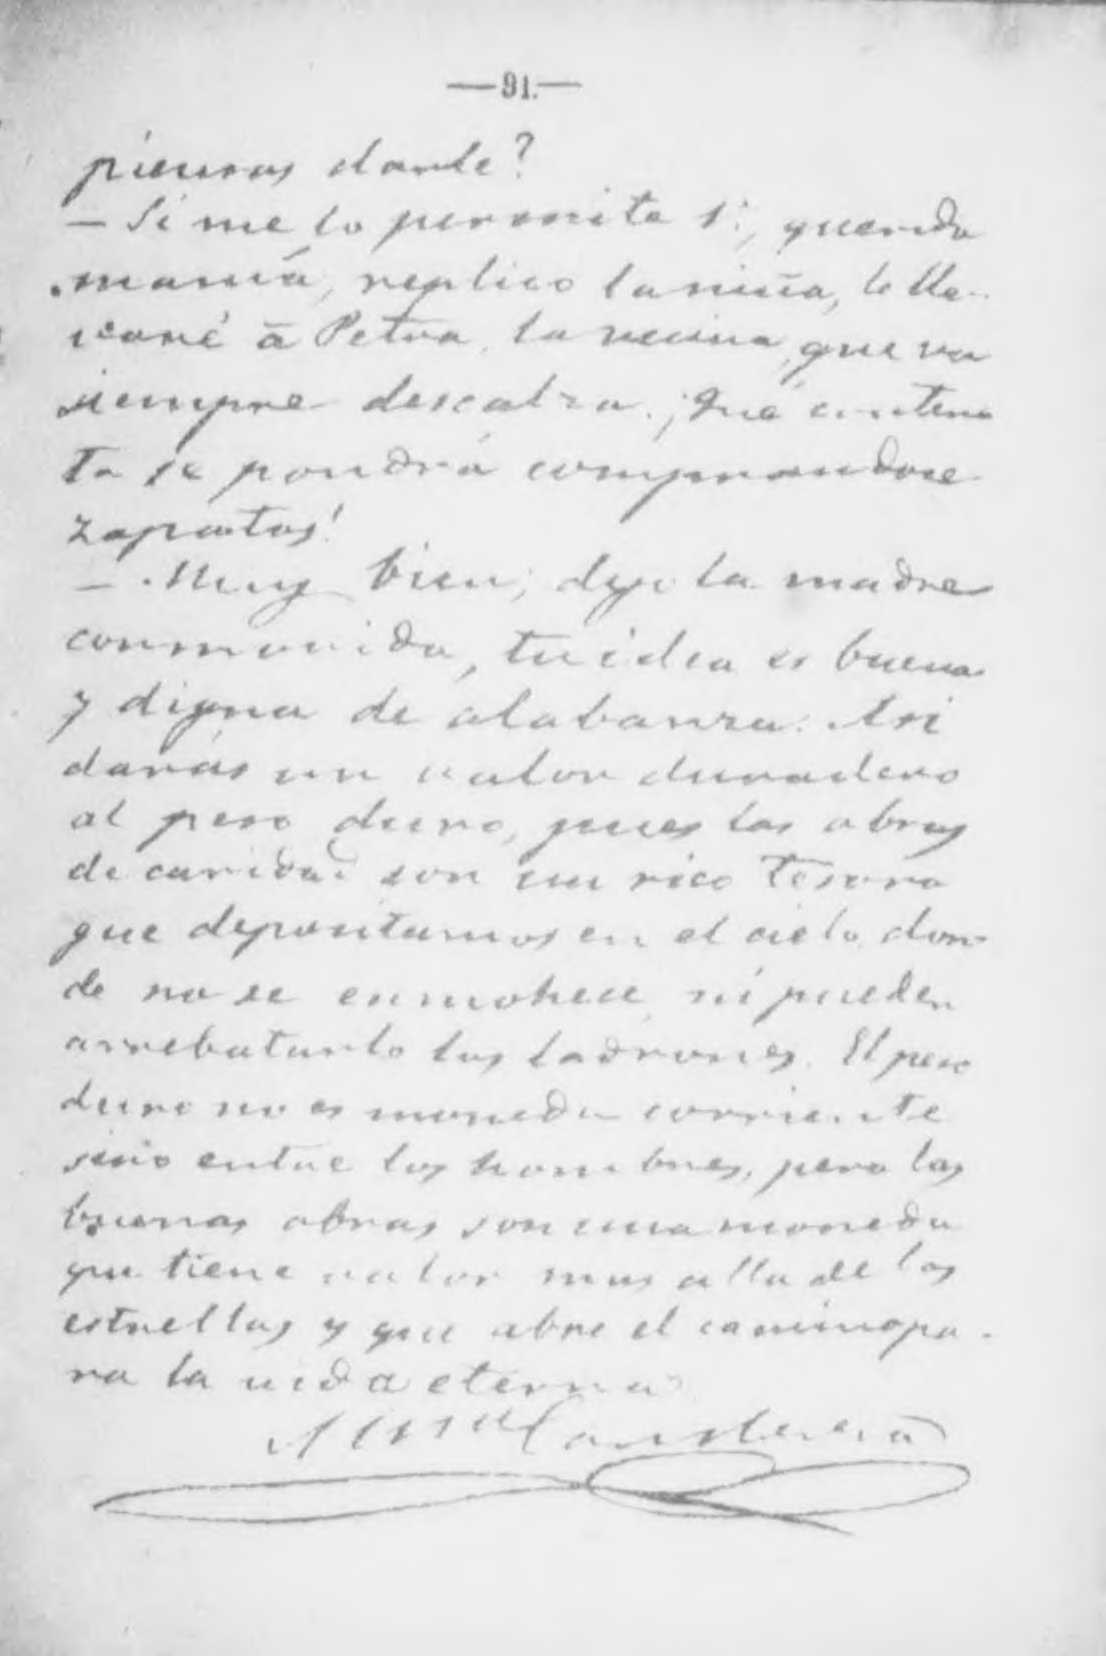 —91.—
piensas darle?
— Si me lo permite V., querida
mamá, replico la niña, lo lle-
varé á Petra, la vecina, que va
siempre descalza. ¡Qué conten-
ta se pondrá comprandose
zapatos!
— Muy bien, dijo la madre
conmovida, tu idea es buena
y digna de alabanza. Asi
darás un valor duradero
al peso duro, pues las obras
de caridad son un rico tesoro
que depositamos en el cielo, don-
de no se enmohece, ni pueden
arrebatarlo los ladrones. El peso
duro no es moneda corriente
sino entre los hombres, pero las
buenas obras son una moneda
que tiene valor mas alla de las
estrellas y que abre el camino pa-
ra la vida eterna.